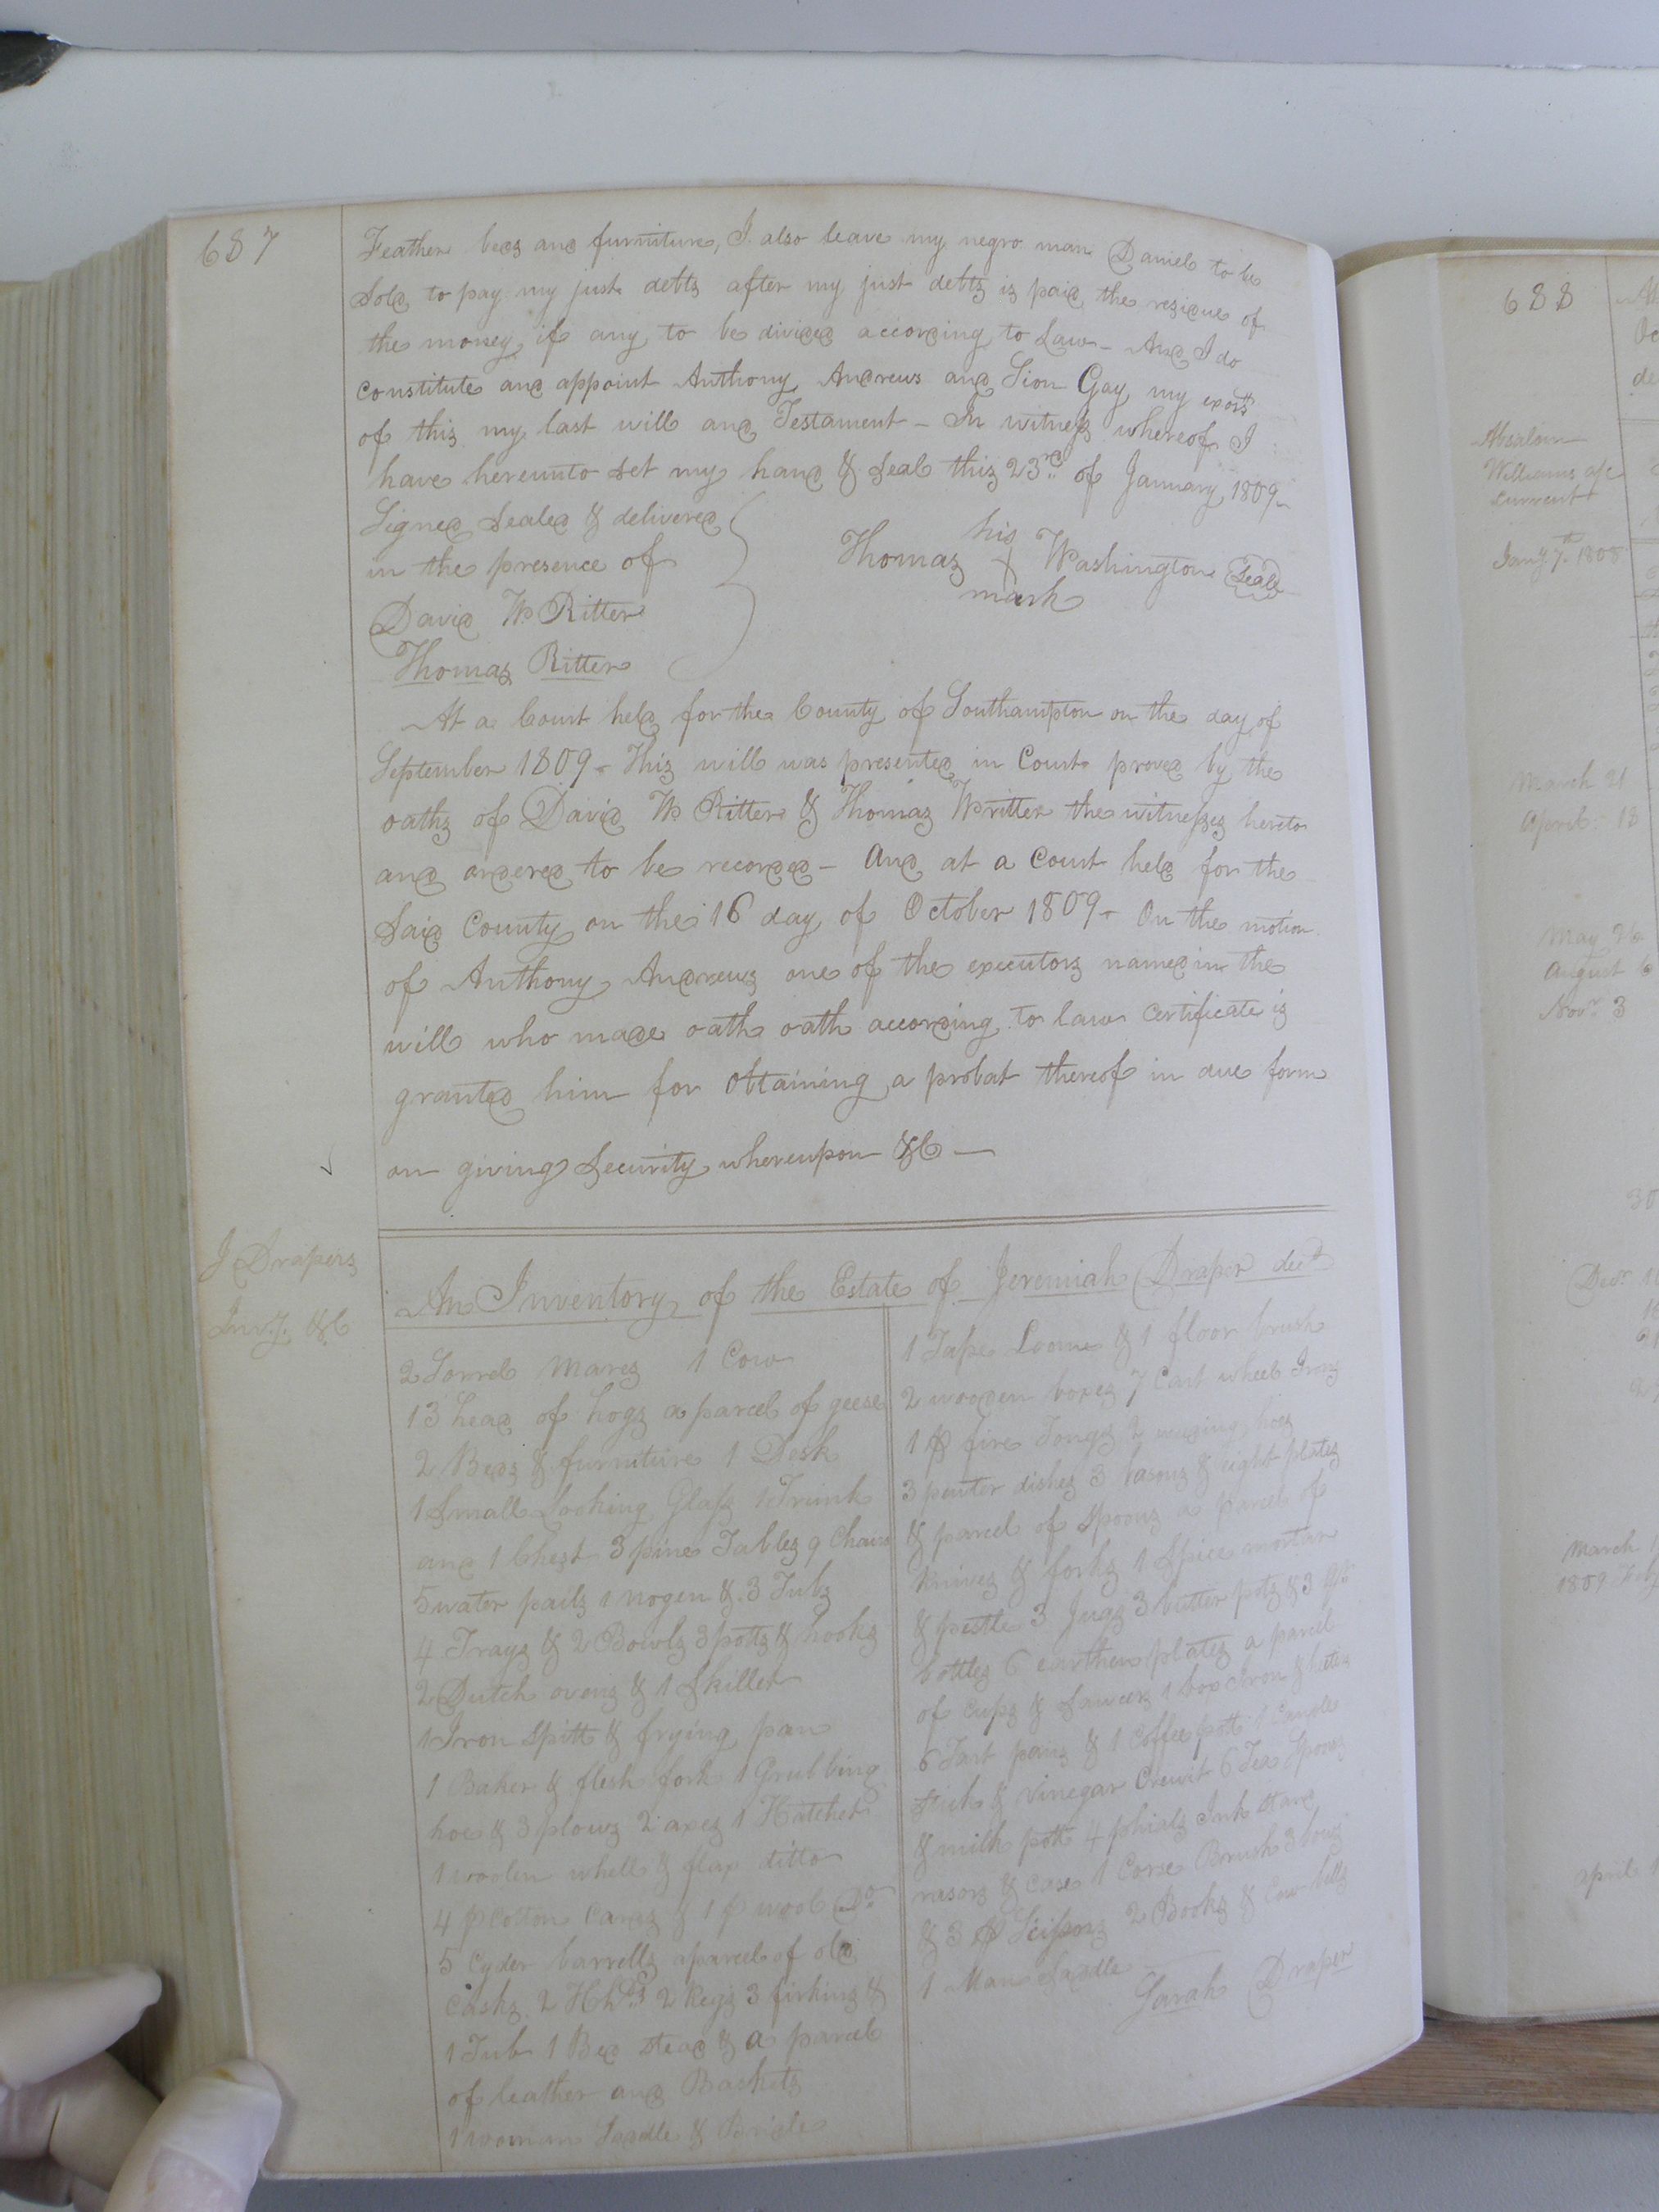 687
Feather beds and furniture, I also leave my negro man Daniel to be
Sold to pay my just debts after my just debts is paid the residue of
the money if any to be divided according to Law – And I do
constitute and appoint Anthony Andrews and Sion Gay my exors
of this my last will and Testament – In witness whereof I
have hereunto set my hand & seal this 23rd of January 1809 –
Signed Sealed & delivered
in the presence of
David W Ritter
Thomas Ritter
his
Thomas + Washington Seal
mark
At a Court held for the County of Southampton on the day of
September 1809 – This will was presented in Court proved by the
oaths of David W Ritter & Thomas Writter the witnesses hereto
and ordered to be recorded – And at a Court held for the
Said County on the 16 day of October 1809 – On the motion
of Anthony Andrews one of the executors named in the
will who made oath oath according to law certificate is
granted him for obtaining a probat thereof in due form
on giving Security whereupon &C —
J Drapers
Invy. &C
An Inventory of the Estate of Jeremiah Draper decd
2 Sorrel Mares 1 Cow
13 head of hogs a parcel of geese
2 Beds & furniture 1 Desk
1 Small Looking Glass 1 Trunk
and 1 Chest 3 pine Tables 9 Chairs
5 water pails 1 nogen & 3 Tubs
4 Trays & 2 Bowls 3 potts & hooks
2 Dutch ovens & 1 Skillet
1 Iron Spitt & frying pan
1 Baker & flesh fork 1 Grubbing
hoe & 3 plows 2 axes 1 Hatchet
1 woolen whell & flax ditto
4 p Cotton Cards & 1 p wool Do
5 Cyder barrells a parcel of old
Casks 2 Hhds 2 Kegs 3 firkins &
1 Tub 1 Bed stead & a parcel
of leather and Baskets
1 woman Saddle & Bridle
1 Tape Loome & 1 floor brush
2 wooden boxes 7 Cart wheel Irons
1 p fire Tongs 2 weeding hoes
3 pewter dishes 3 basons & eight plates
& parcel of Spoons a parcel of
Knives & forks 1 Spice mortar
& pestle 3 Jugs 3 butter pots & 3
bottles 6 earthen plates a parcel
of cups & Saucers 1 box Iron & heters
6 Tart pans & 1 Coffee pott 1 Candle
stick & vinegar Crewit 6 Tea Spoons
& milk pott 4 phials Ink stand
rasors & case 1 Corse Brush 3
& 3 p Scissors 2 Books & Cow bells
1 Man Saddle
Sarah Draper
688
Absalom
Williams a/c
Current
Jany. 7th. 1808
March 21
April 18
May 26
August 6
Novr 3
Decr
March
1809
april